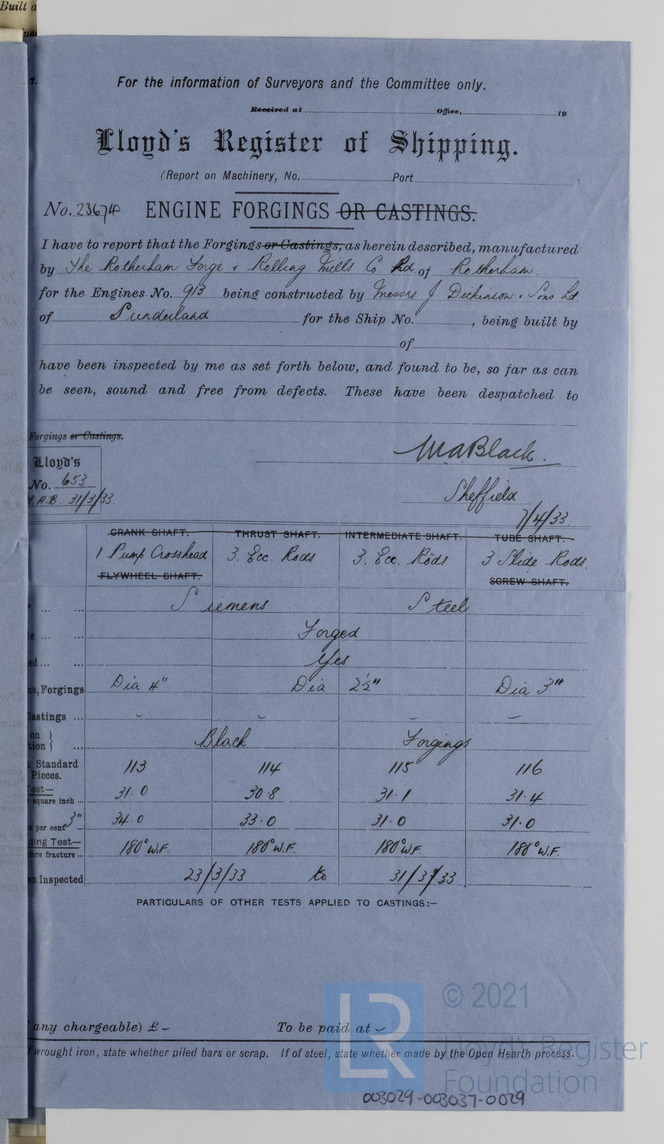 Built a
7.
For the information of Surveyors and the Committee only.
Received at Office, 19
Lloyd's Register of Shipping.
(Report on Machinery, No. Port )
No. 23674 ENGINE FORGINGS OR CASTINGS.
I have to report that the Forgings or Castings, as herein described, manufactured
by The Rotherham Forge & Rolling Mills Co Ltd of Rotherham.
for the Engines No. 913 being constructed by Messrs J. Dickinson & Sons Ltd
of Sunderland for the Ship No. , being built by
of
have been inspected by me as set forth below, and found to be, so far as can
be seen, sound and free from defects. These have been despatched to
Forgings or Castings.
W A Black.
Lloyd's
No. 653
W.A.B 31/3/33
Sheffield
7/4/33
CRANK SHAFT. THRUST SHAFT. INTERMEDIATE SHAFT. TUBE SHAFT.
1 Pump Crosshead 3. Ecc. Rods 3. Ecc. Rods 3 Slide Rods.
FLYWHEEL SHAFT. SCREW SHAFT.
Siemens Steel
Forged
Yes
s, Forgings Dia 4" Dia 2½" Dia 3"
Castings ... - - - -
on
tion Black Forgings
Standard
Pieces. 113 114 115 116
est—
square inch ... 31.0 30.8 31.1 31.4
per cent 3" 34.0 33.0 31.0 31.0
ding Test—
ore fracture ... 180° W.F. 180° W.F. 180° W.F. 180° W.F.
n Inspected 23/3/33 to 31/3/33
PARTICULARS OF OTHER TESTS APPLIED TO CASTINGS:—
any chargeable) £ - To be paid at -
f wrought iron, state whether piled bars or scrap. If of steel, state whether made by the Open Hearth process.
LR
© 2021
Lloyd's Register
Foundation
003029-003037-0029